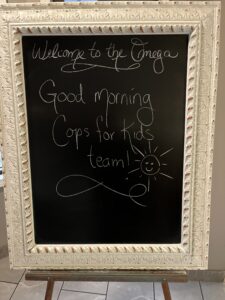 Welcome to the Omega
Good morning
Cops for Kids
team!